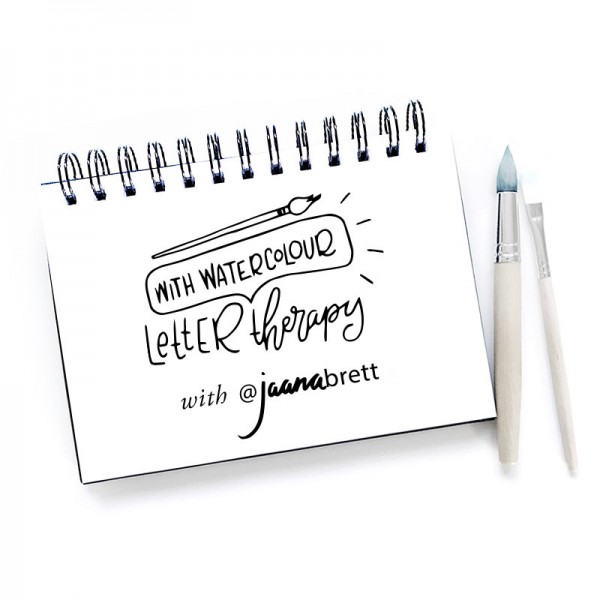 WITH WATERCOLOUR
LettER therapy
with @jaanabrett